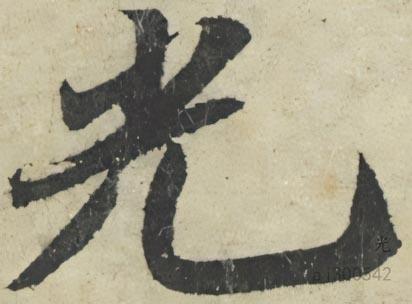 光
光
a1300342